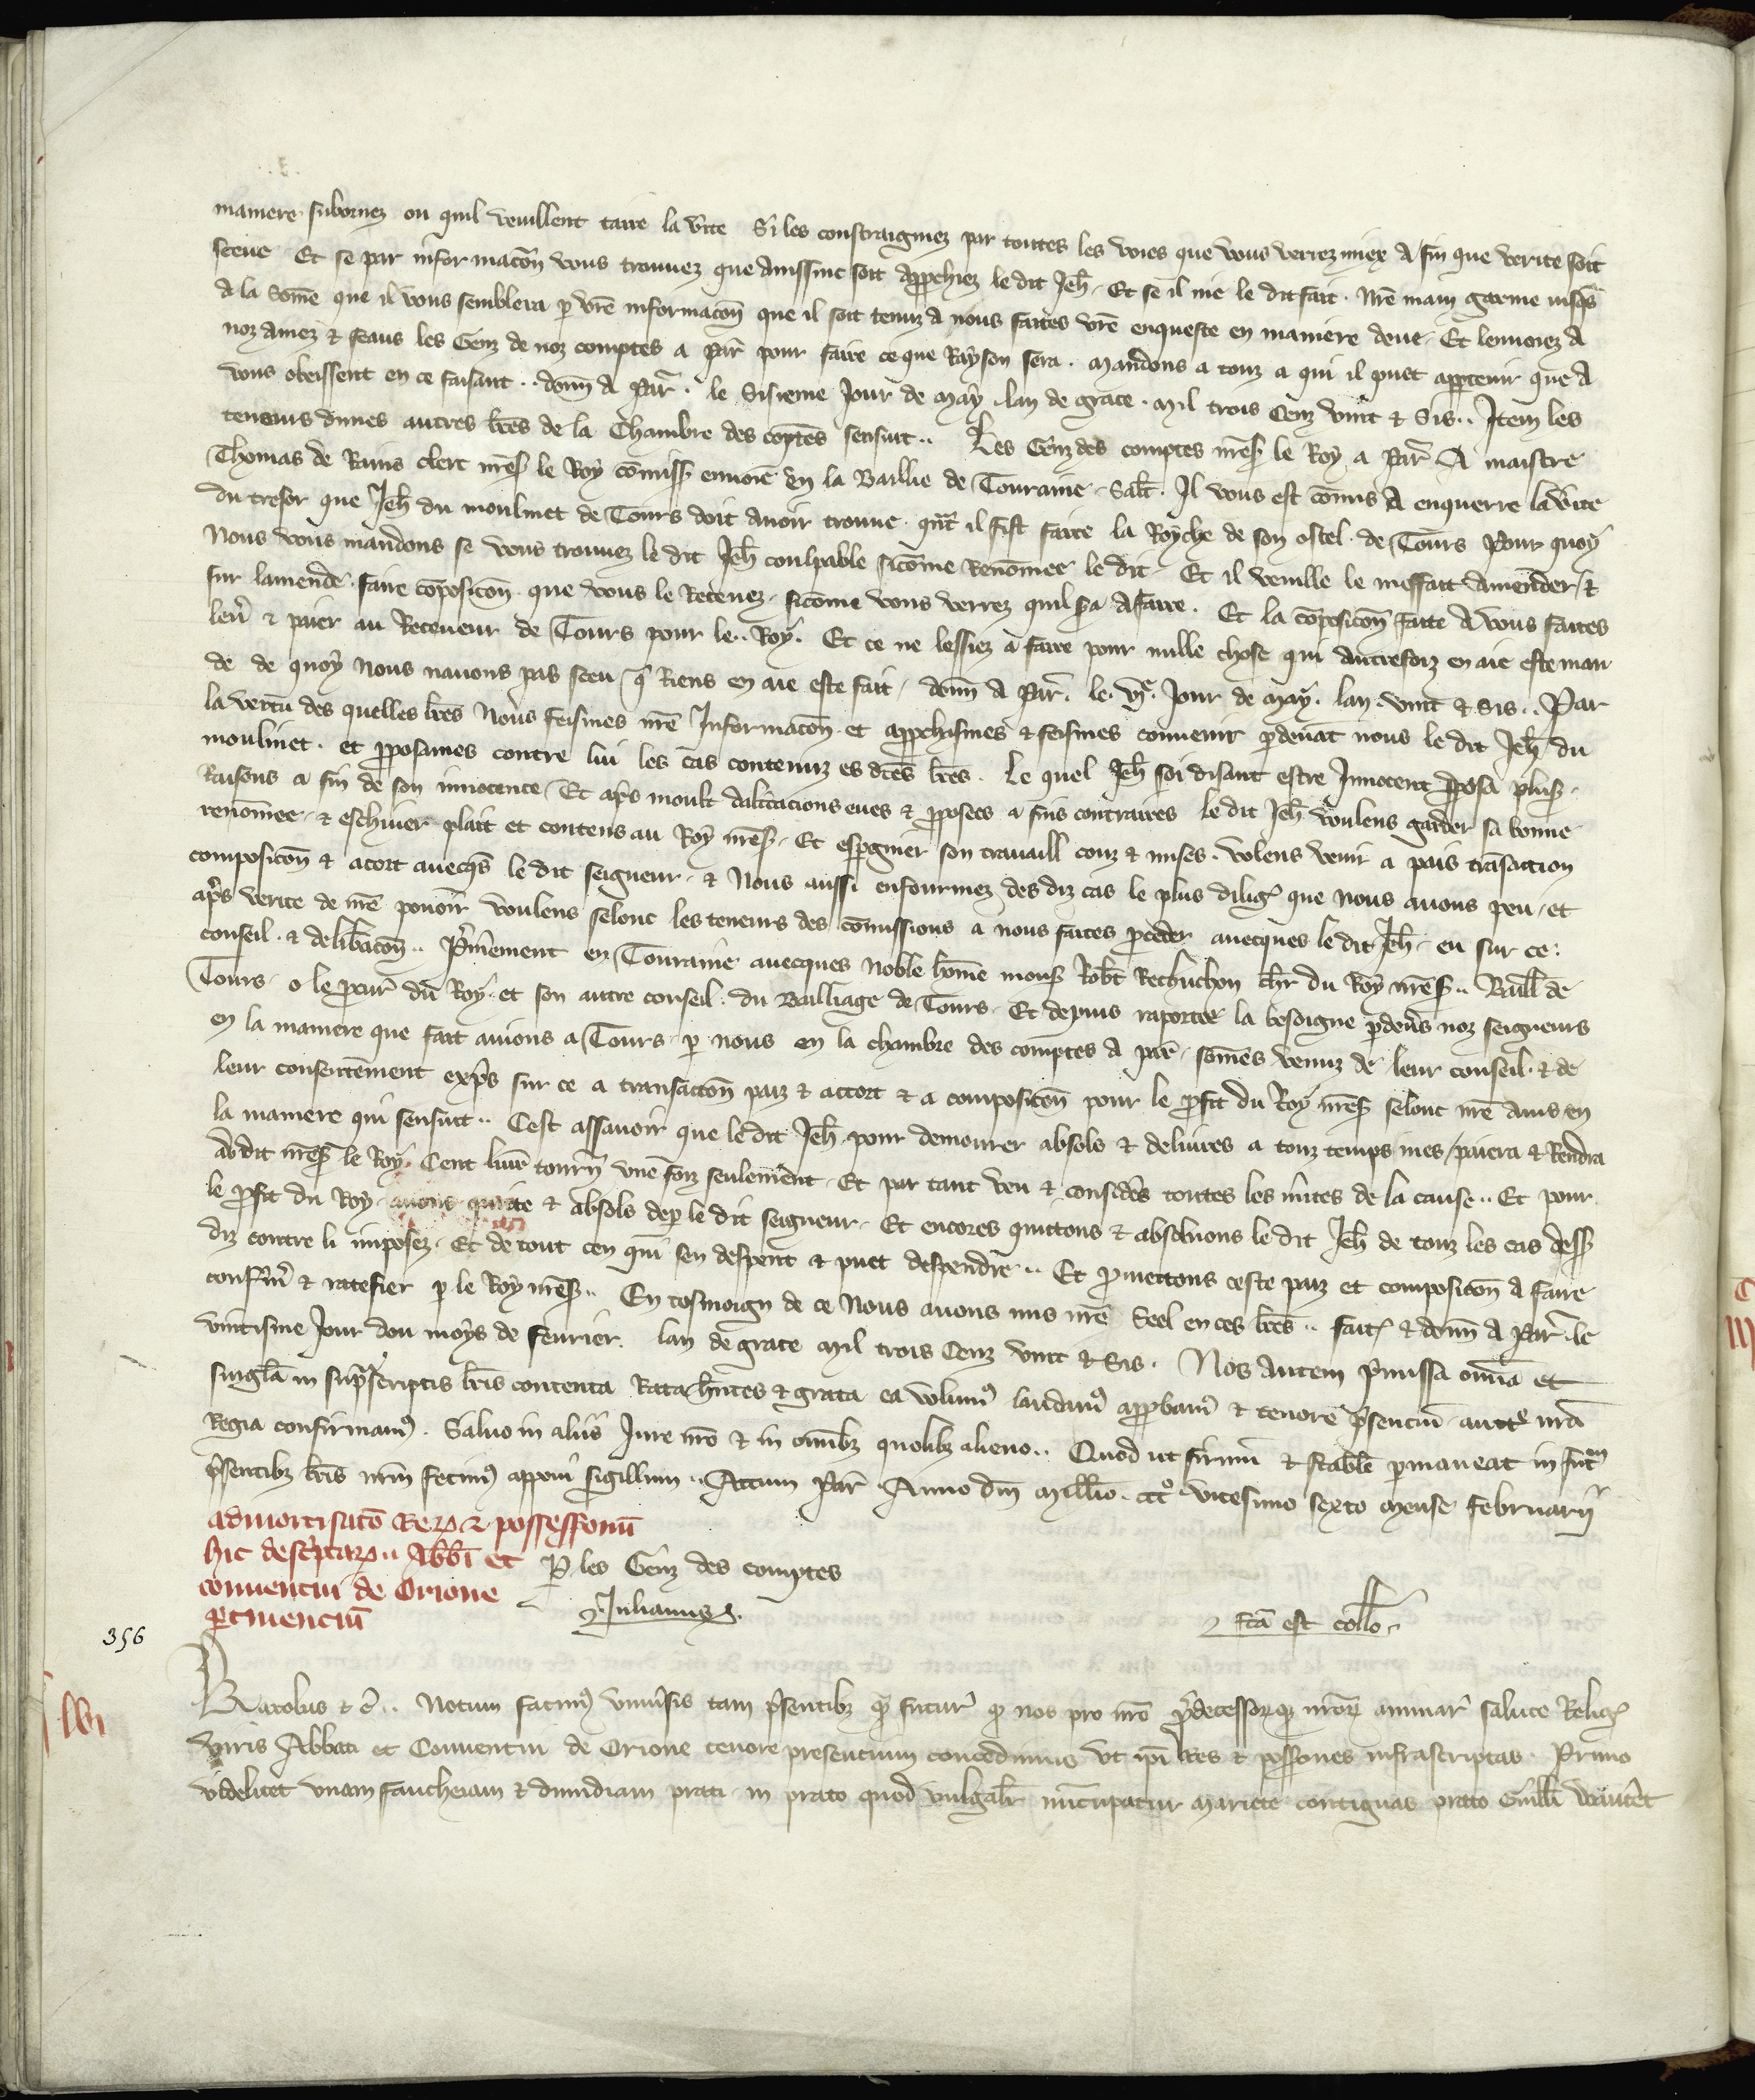 maniere subornez ou quil veuillent taire la vite Si les constraigniez par toutes les voies que vous verrez miex a fin que verite soit
sceue Et se par informacōn vous trouvez que ainssinc soit approchiez le dit Jeh̄ Et se il nie le dit fait. nr̄e main garnie iusqs
a la Som̄e que il vous semblera p vr̄e informacōn que il soit tenuz a nous faites vr̄e enqueste en maniere deue Et lenvoiez a
noz amez & feaus les Genz de noz comptes a Par̄ pour faire ce que Rayson sera. Mandons a touz a qui il puet apptenir que a
vous obeissent en ce faisant.. donn̄ a Par̄. le Sisieme Jour de May. lan de grace. mil trois Cenz vint & Sis.. Item les
teneurs dunes autres lr̄es de la Chambre des cōptes sensuit.. Les Genz des comptes nr̄es le Roy a Par̄ A maistre
Thomas de Rains clerc nr̄es le Roy cōmiss envoié en la Baillie de Touraine. Salt. Il vous est cōmis a enquerre la vite
du tresor que Jeh̄ du moulinet de Tours doit avoir trouve. qn̄t il fist faire la Royche de son ostel. de Tours Pour quoy
Nous vous mandons se vous trouvez le dit Jeh̄ coulpable sicōme Renōmee le dit Et il veuille le meffait amender &
sur lamende faire cōposicōn que vous le Recevez. sicōme vous verrez quil sa a faire. Et la cōposicōn faite a vous faites
lev̄ & paier au Receveur de Tours pour le.. Roy. Et ce ne lessiez a faire pour nulle chose qui autrefoiz en aie este man
de de quoy nous navons pas sceu q Riens en aie este fait, donn̄ a Par̄. le. vj.e Jour de May. lan. vint & Sis.. Par
la vertu des quelles lr̄es Nous feismes nr̄e Informacōn et approchismes & feismes convenir pdevāt nous le dit Jeh̄ du
moulinet. et pposames contre lui les cas contenuz es dc̄es lr̄es. Le quel Jeh̄ soi disant estre Innocent pposa plus.
Raisons a fin de son innocence Et apres moult daltacions eues & pposees a fins contraires le dit Jeh̄ voulens garder sa bonne
renōmee & eschiver plait et contens au Roy nr̄es. Et espgnier son travaill couz & mises. Volens venir a pais trāsaction
composicōn & acort avecqs le dit seigneur. & Nous aussi enfourmez des diz cas le plus dilig que nous avons peu. et
apres verite de nr̄e povoir voulens selonc les teneurs des cōmissions a nous faites pceder avecques le dit Jeh̄. eu sur ce.
conseil. & delibacōn.. P̄mierement en Touraine avecques Noble hōme mons Rob̄t Rechuchon chr̄ du Roy nr̄es.. Baill̄ de
Tours. o le pcur̄ du Roy. et son autre conseil. du Bailliage de Tours. Et depuis raportee la besoigne pdevēs noz seigneurs
en la maniere que fait avions a Tours p nous en la chambre des comptes a par̄. som̄es venuz de leur conseil & de
leur consentement expres sur ce a transaccōn paiz & accort & a composicōn pour le pfit du Roy nr̄es selonc nr̄e avis en
la maniere qui sensuit.. Cest assavoir que le dit Jeh̄ pour demourer absols & delivres a touz temps mes, paiera & Rendra
au dit nr̄es le Roy. Cent livr̄ tourn̄ une foiz seulement. Et par tant veu & consideres toutes les m̄ites de la cause.. Et pour
le pfit du Roy. avons quitte & absols dep le dit seigneur. Et encores quittons & absolvons le dit Jeh̄ de touz les cas dess
diz contre li imposez. Et de tout cen qui sen despent & puet despendre.. Et pmettons ceste paiz et composicōn a faire
confirm̄ & ratefier p le Roy nr̄es.. En tesmoign de ce Nous avons mis nr̄e Seel en ces lr̄es.. fait & donn̄ a Par̄. le
vintisme Jour dou moys de Fevrier. lan de grace Mil trois Cenz vint & Sis. Nos autem p̄missa om̄ia et
singl̄a in sup̄scriptis lr̄is contenta Rata hn̄tes & grata ea volum⁹ laudam⁹ approbam⁹ & tenore p̄sencium auct̄e nr̄a
Regia confirmam⁹. Salvo in aliis Jure nr̄o & in omībz quolibz alieno.. Quod ut firmū & stabile pmaneat in futur̄
p̄sentibz lr̄is nr̄m fecim⁹ apponi sigillum.. Actum Par̄. Anno dn̄i Mill̄io. ccc⁰. vicesimo sexto mense Februarii
admortisatō Reꝝ & possessionū
hic descriptaꝝ.. Abbi et
conventui de Orione
ptinenciū
P les Genz des comptes
Julianus.
fc̄a est coll̄o.
356
Karolus & c̄.. Notum facim⁹ univsis tam p̄sentibz q̄ futur̄ q nos pro nr̄o p̄decessorꝗ nr̄oꝝ animar̄ salute Relig
viris Abbati et Conventui de Orione tenore presencium concedimus ut ipi Res & possones infrascriptas. Primo
videlicet unam faucheiam & dimidiam prati. in prato quod vulgalr̄ nūcupatur Mariete contiguas prato Guill̄i